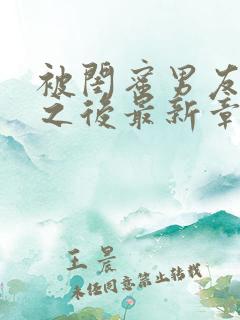 被閨蜜男友
之後最新章
王晨
未经同意禁止转载